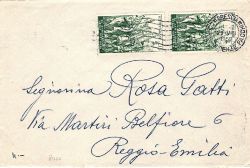 Signorina Rosa Gatti
Via Martiri Belfiore 6
Reggio-Emilia